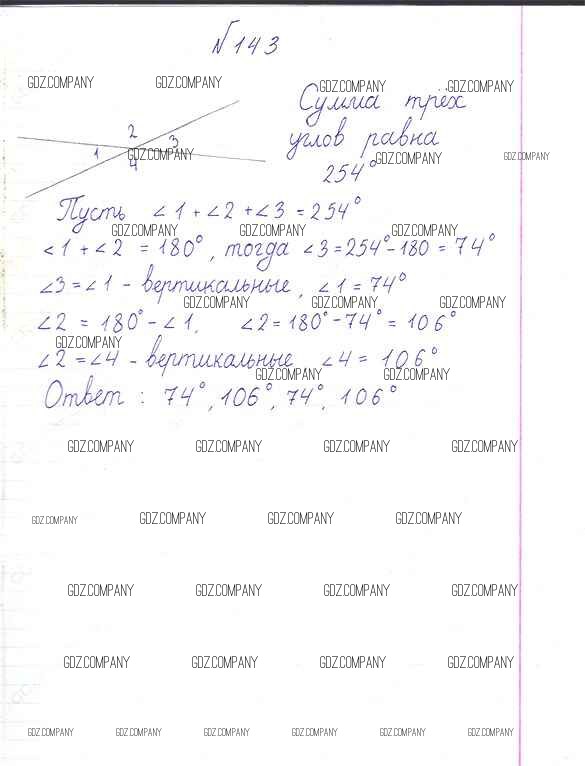 № 143
GDZ.COMPANY GDZ.COMPANY GDZ.COMPANY GDZ.COMPANY
Сумма трёх
углов равна
254°
2
1
3
4
GDZ.COMPANY GDZ.COMPANY GDZ.COMPANY
Пусть ∠1 + ∠2 + ∠3 = 254°
GDZ.COMPANY GDZ.COMPANY GDZ.COMPANY
∠1 + ∠2 = 180°, тогда ∠3 = 254° - 180 = 74°
∠3 = ∠1 - вертикальные, ∠1 = 74°
GDZ.COMPANY GDZ.COMPANY GDZ.COMPANY
∠2 = 180° - ∠1, ∠2 = 180° - 74° = 106°
GDZ.COMPANY
∠2 = ∠4 - вертикальные ∠4 = 106°
GDZ.COMPANY GDZ.COMPANY
Ответ : 74°, 106°, 74°, 106°
GDZ.COMPANY GDZ.COMPANY GDZ.COMPANY GDZ.COMPANY
GDZ.COMPANY GDZ.COMPANY GDZ.COMPANY GDZ.COMPANY
GDZ.COMPANY GDZ.COMPANY GDZ.COMPANY GDZ.COMPANY
GDZ.COMPANY GDZ.COMPANY GDZ.COMPANY GDZ.COMPANY
GDZ.COMPANY GDZ.COMPANY GDZ.COMPANY GDZ.COMPANY GDZ.COMPANY GDZ.COMPANY